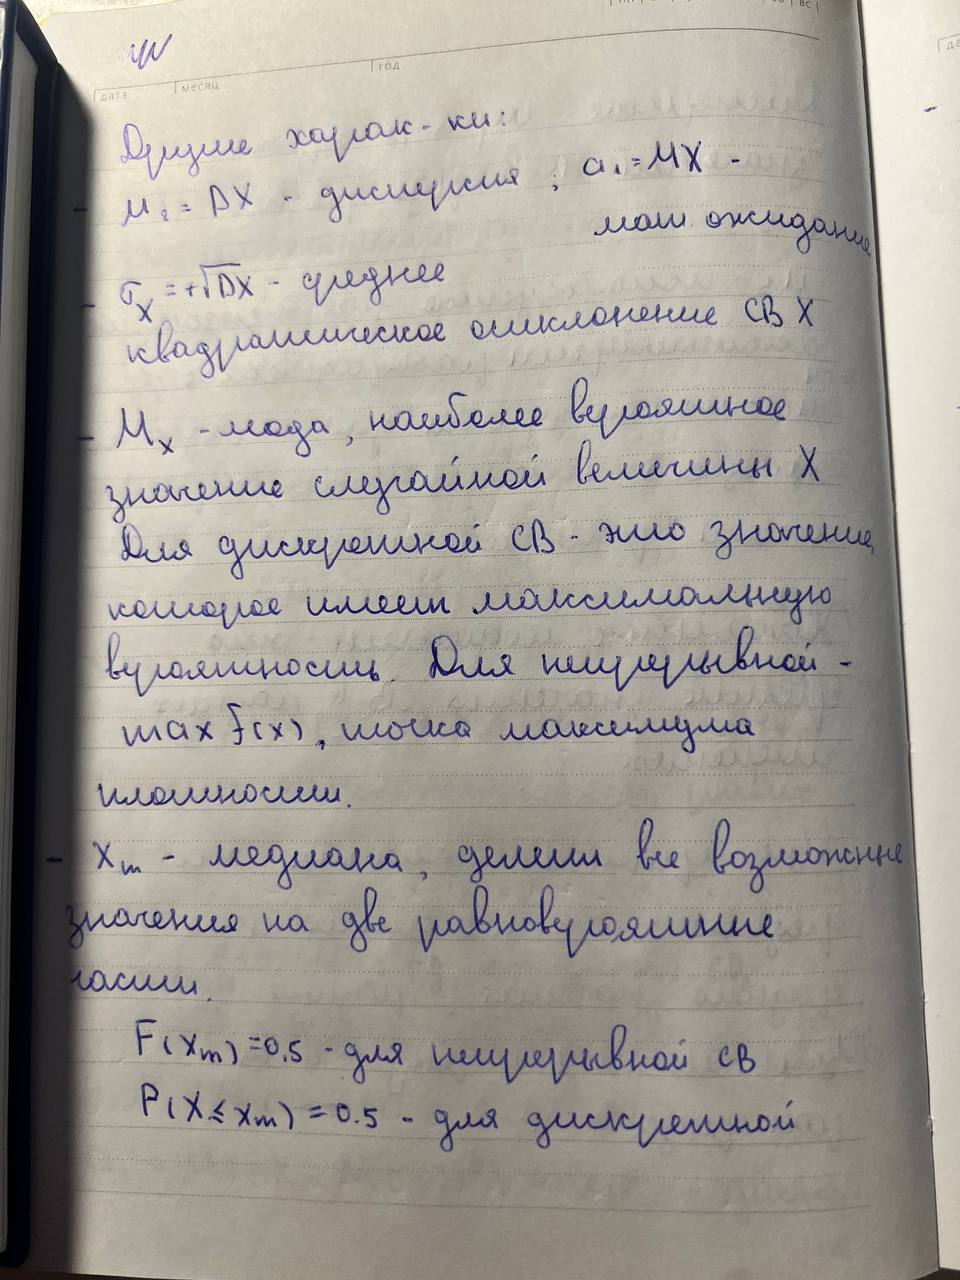 дата месяц год
Другие харак-ки:
- μ₂ = DX - дисперсия ; α₁ = MX -
мат ожидание
- σₓ = +√DX - среднее
квадратическое отклонение СВ X
- Mₓ - мода, наиболее вероятное
значение случайной величины X
Для дискретной СВ - это значение,
которое имеет максимальную
вероятность. Для непрерывной -
max f(x), точка максимума
плотности.
- Xₘ - медиана, делит все возможные
значения на две равновероятные
части.
F(Xₘ) = 0.5 - для непрерывной СВ
P(X ≤ xₘ) = 0.5 - для дискретной